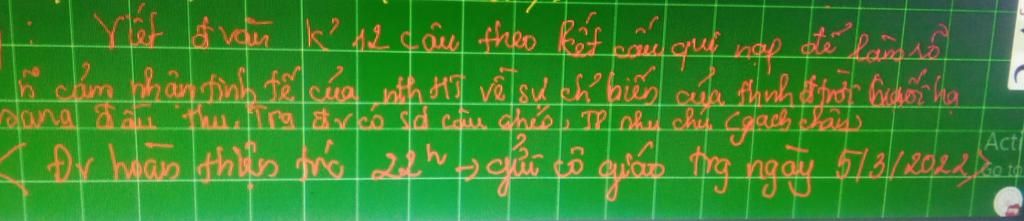 : Viết đ văn k² 12 câu theo kết cấu qui nạp để làm rõ
n~ cảm nhận tinh tế của nth HT về sự ch² biến của thnh đ trời cuối hạ
sang đầu thu. Trg đv có sd câu ghép, TP phụ chú (gạch chân)
< Đv hoàn thiện trc 22h → gửi cô giáo trg ngày 5/3/2022>
Acti
Go to